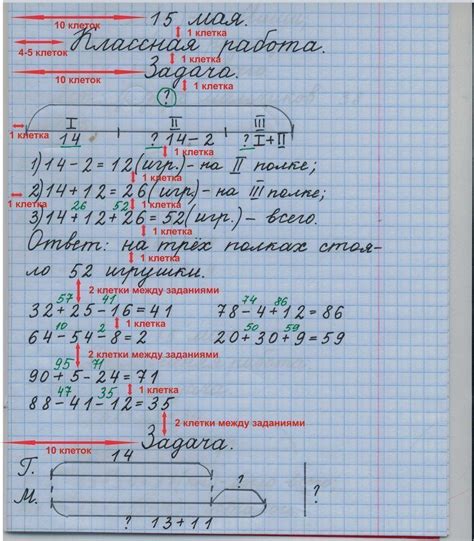 10 клеток 15 мая.
1 клетка
4-5 клеток Классная работа.
1 клетка
10 клеток Задача.
1 клетка
?
1 клетка I II III
14 ? 14-2 ? I+II
1 клетка
1) 14-2=12 (игр.) - на II полке;
1 клетка
2) 14+12=26 (игр.) - на III полке;
1 клетка 26 52 1 клетка
3) 14+12+26=52 (игр.) - всего.
1 клетка
Ответ: на трёх полках стоя-
1 клетка
ло 52 игрушки.
2 клетки между заданиями
57 41 74 86
32+25-16=41 78-4+12=86
10 2 1 клетка 50 59
64-54-8=2 20+30+9=59
2 клетки между заданиями
95 71
90+5-24=71
47 35 1 клетка
88-41-12=35
2 клетки между заданиями
10 клеток Задача.
14
Г.
М. ?
? 13+11